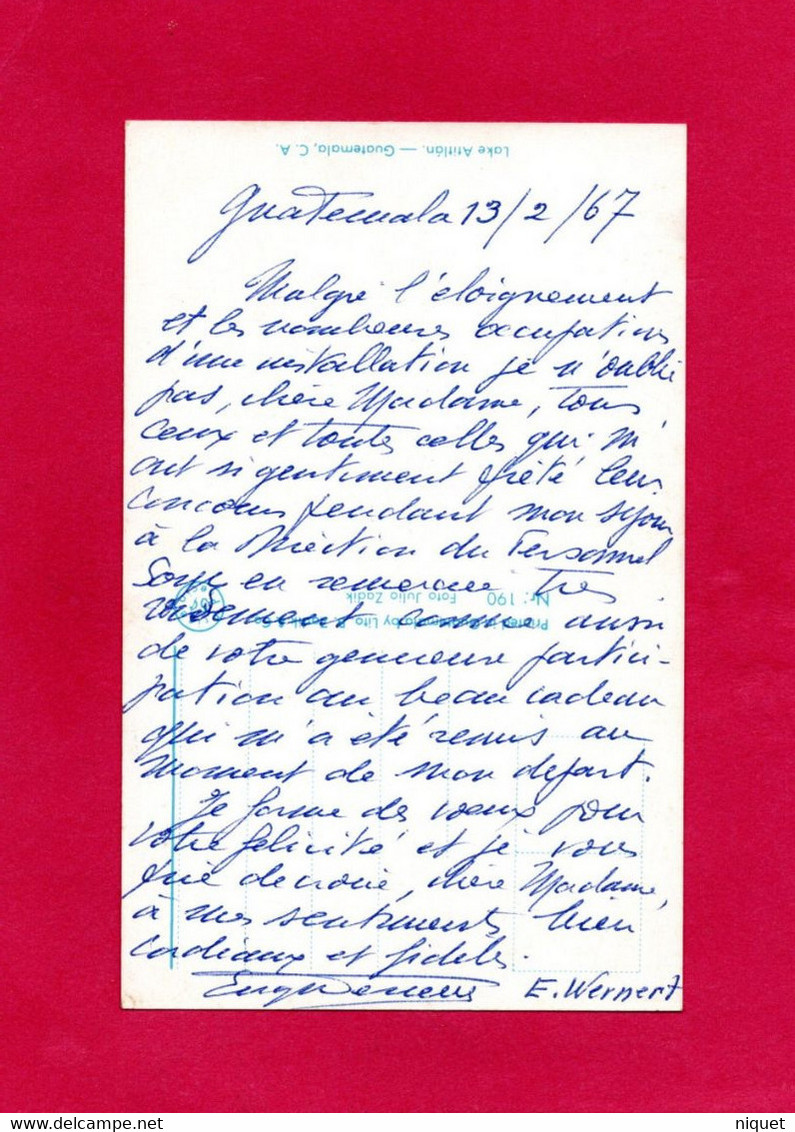 Lake Atitlán. — Guatemala, C. A.
Guatemala 13/2/67
Malgré l'éloignement
et les nombreuses occupations
d'une installation je n'oublie
pas, chère Madame, tous
ceux et toutes celles qui m'
ont si gentiment prêté leur
concours pendant mon séjour
à la Direction du Personnel
en remercie très
Nr. 190 Foto Julio Zadik
Printed in Guatemala by Lito B. Zadik & Co.
comme aussi
de votre généreuse partici-
pation au beau cadeau
qui m'a été remis au
moment de mon départ.
Je forme des voeux pour
votre félicité et je vous
prie de croire, chère Madame,
à mes sentiments bien
cordiaux et fidèles.
E. Wernert
www.delcampe.net
niquet